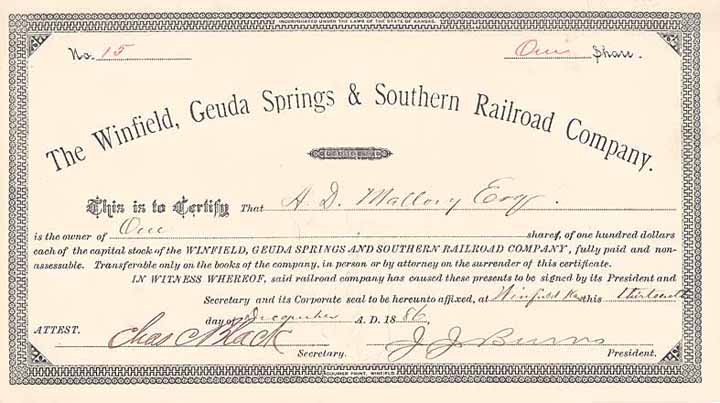 INCORPORATED UNDER THE LAWS OF THE STATE OF KANSAS.
No. 15 One Share.
The Winfield, Geuda Springs & Southern Railroad Company.
This is to Certify That A. D. Mallory Esqr.
is the owner of One shares, of one hundred dollars
each of the capital stock of the WINFIELD, GEUDA SPRINGS AND SOUTHERN RAILROAD COMPANY, fully paid and non-
assessable. Transferable only on the books of the company, in person or by attorney on the surrender of this certificate.
IN WITNESS WHEREOF, said railroad company has caused these presents to be signed by its President and
Secretary and its Corporate seal to be hereunto affixed, at Winfield Kas this thirteenth
day of December A. D. 1886.
ATTEST. Chas C Black J J Burns
Secretary. President.
COURIER PRINT, WINFIELD